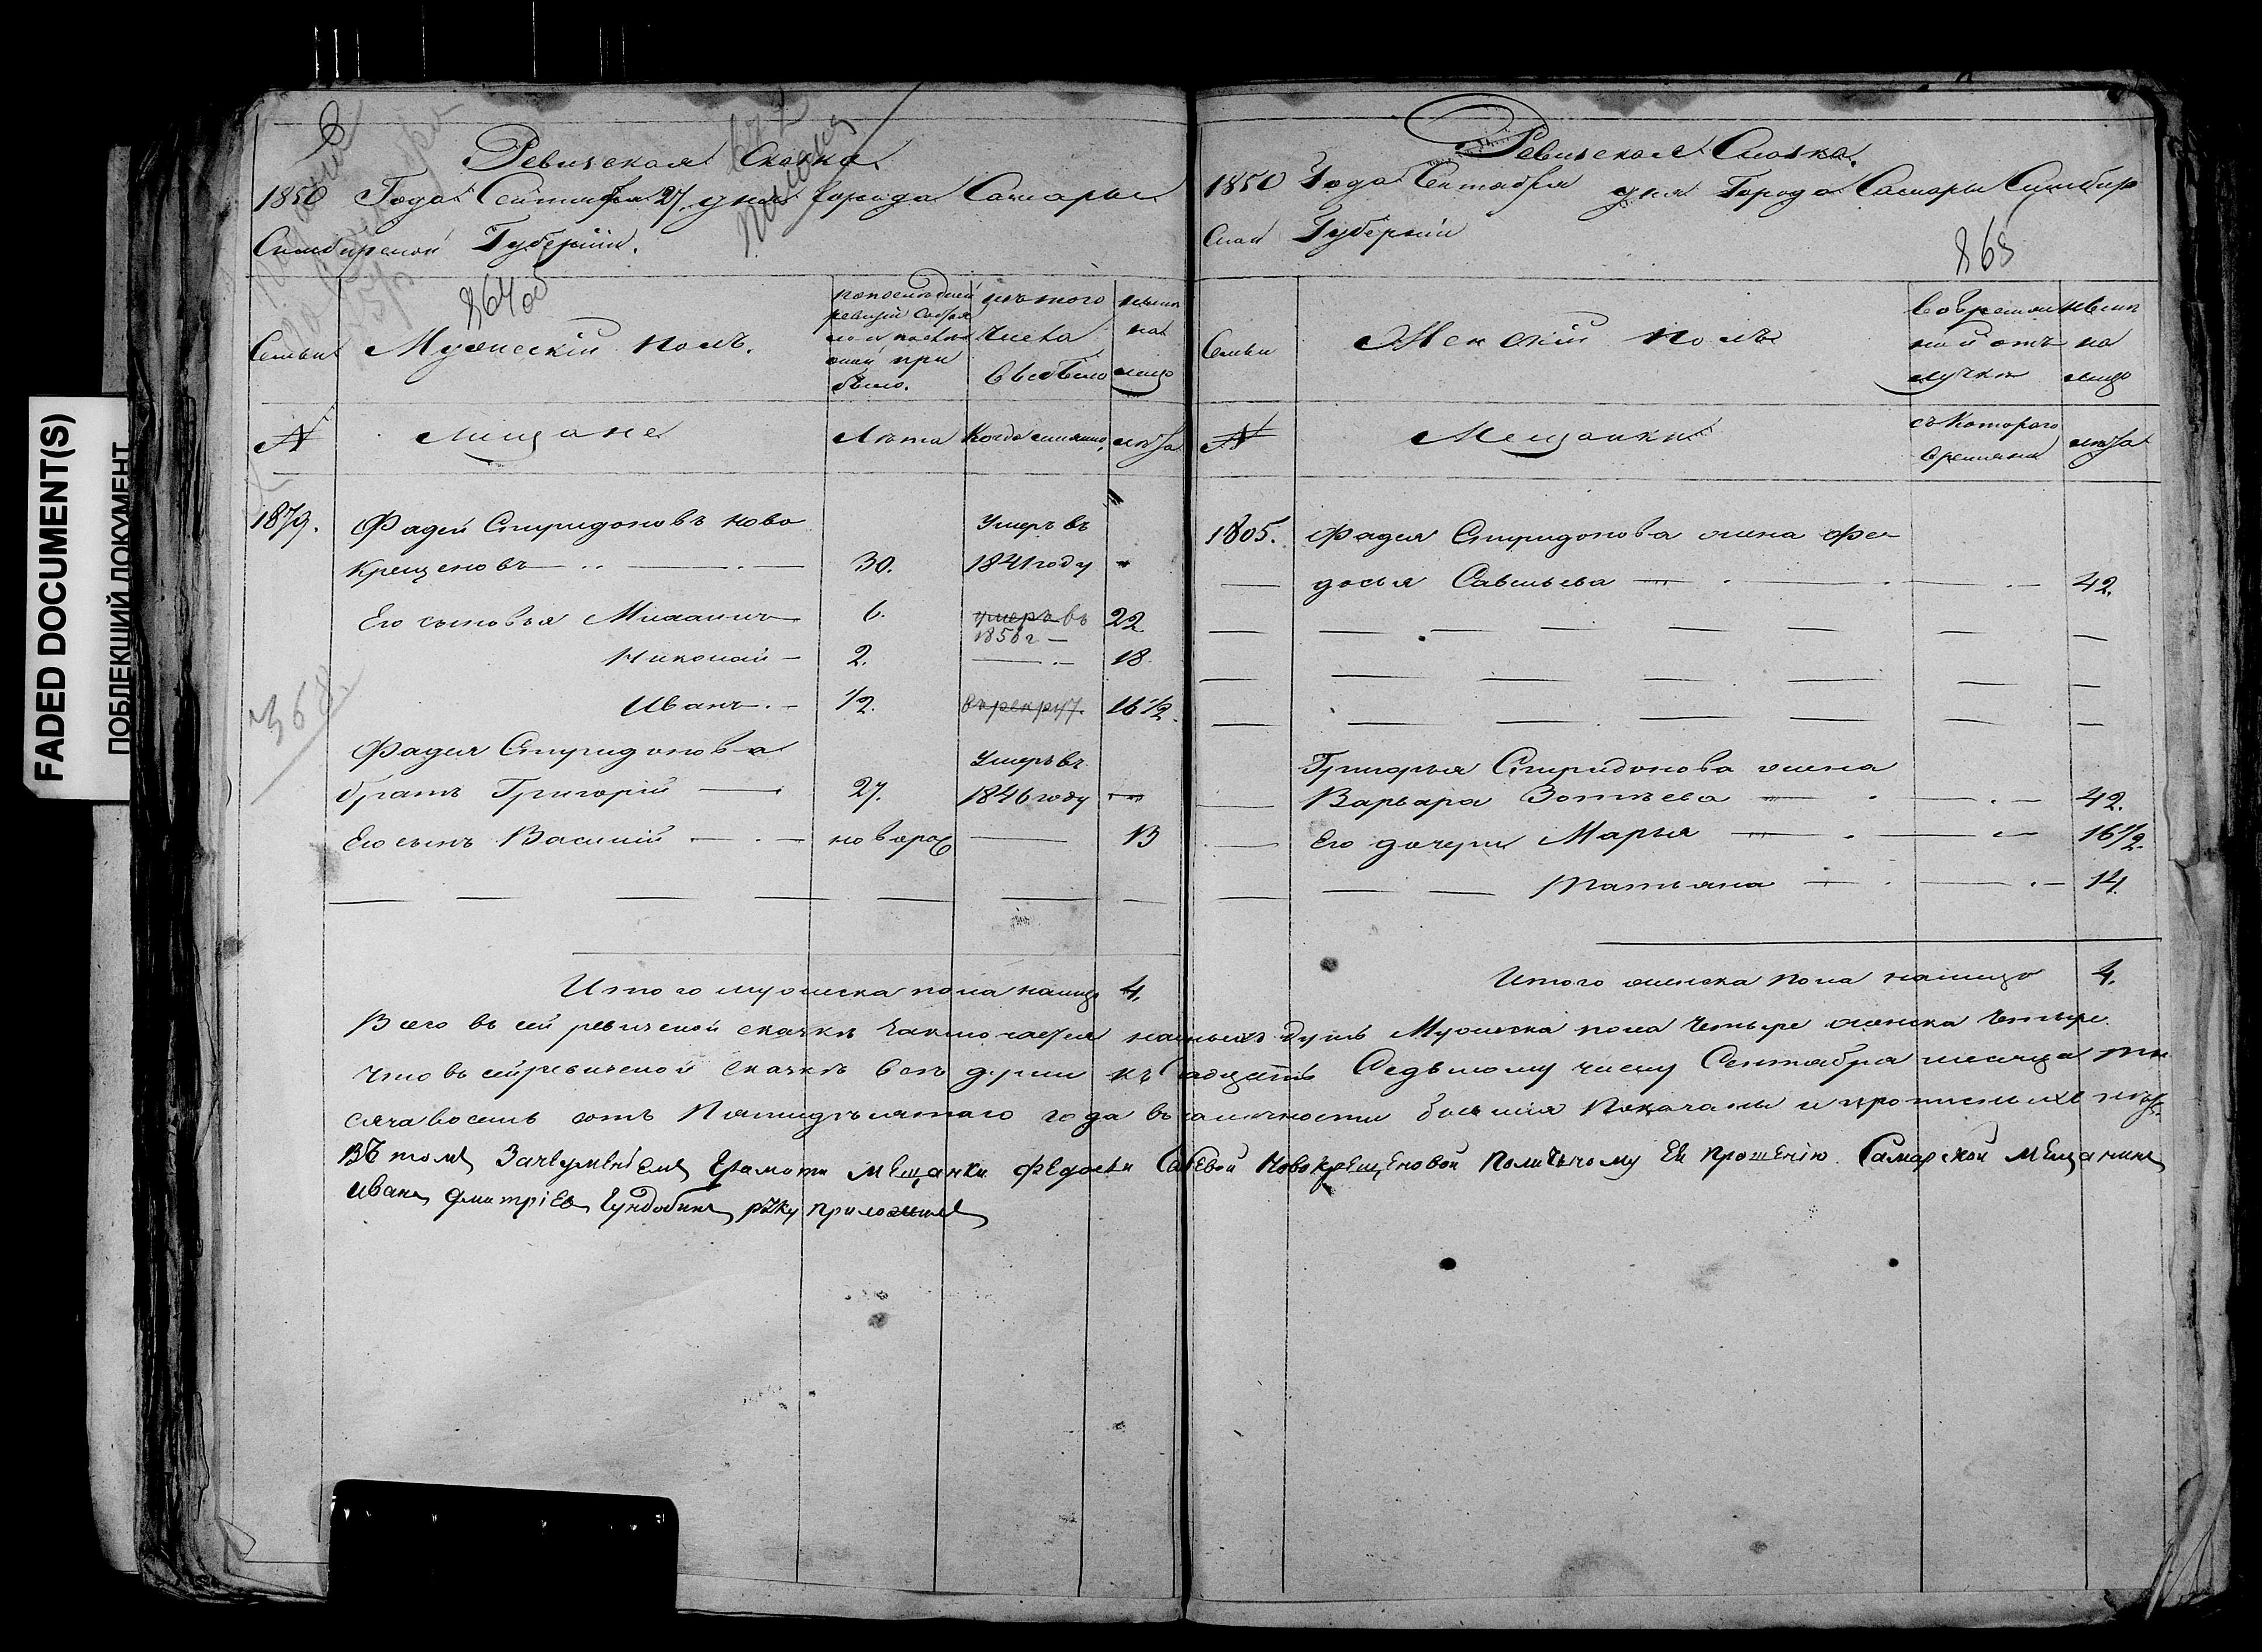 FADED DOCUMENT(S)
ПОБЛЕКШИЙ ДОКУМЕНТ
Ревизская Сказка.
1850 Года Сентября 27 дня города Самары
Симбирской Губернии.
864 об
Семьи
Мужескій полъ.
по последней ревизіи состояло и после оной прибыло.
изъ того числа выбыло
ныне на лицо
№
мещане
Лета
Когда именно.
лета
1879.
Фадей Спиридоновъ Ново
крещеновъ
30.
Умеръ въ
1841 году
Его сыновья Михаилъ
6.
умеръ въ
1856 г
22
Николай
2.
18
Иванъ
1/2.
въ рекрут.
16 1/2.
Фадея Спиридонова
братъ Григорій
27.
Умеръ въ
1846 году
Его сынъ Василій
новорож
13
Итого мужеска пола налицо 4.
368.
Ревизская Сказка.
1850 Года Сентября дня Города Самары Симбир
ской Губерніи
865
Семьи
Женскій полъ
во временной отлучке
ныне на лицо
№
Мещанки
съ которого времени
лета
1805.
Фадея Спиридонова жена Фе
досья Савельева
42.
Григорья Спиридонова жена
Варвара Зотеева
42.
Его дочери Марья
16 1/2.
Татьяна
14.
Итого женска пола налицо 4.
Всего въ сей ревизской сказке заключается наличныхъ душъ Мужеска пола четыре женска четыре.
Что въ сей ревизской сказке все души къ двадцать Седьмому числу Сентября месяца ты
сяча восемь сотъ Пятидесятаго года въ наличности бывшія показаны и прописныхъ нетъ.
Въ томъ За неуменіемъ грамоти мещанки Федосьи Савевой Новокрещеновой По личному Ей прошенію Самарской мещанинъ
Иванъ Дмитріевъ Гундобинъ руку приложилъ